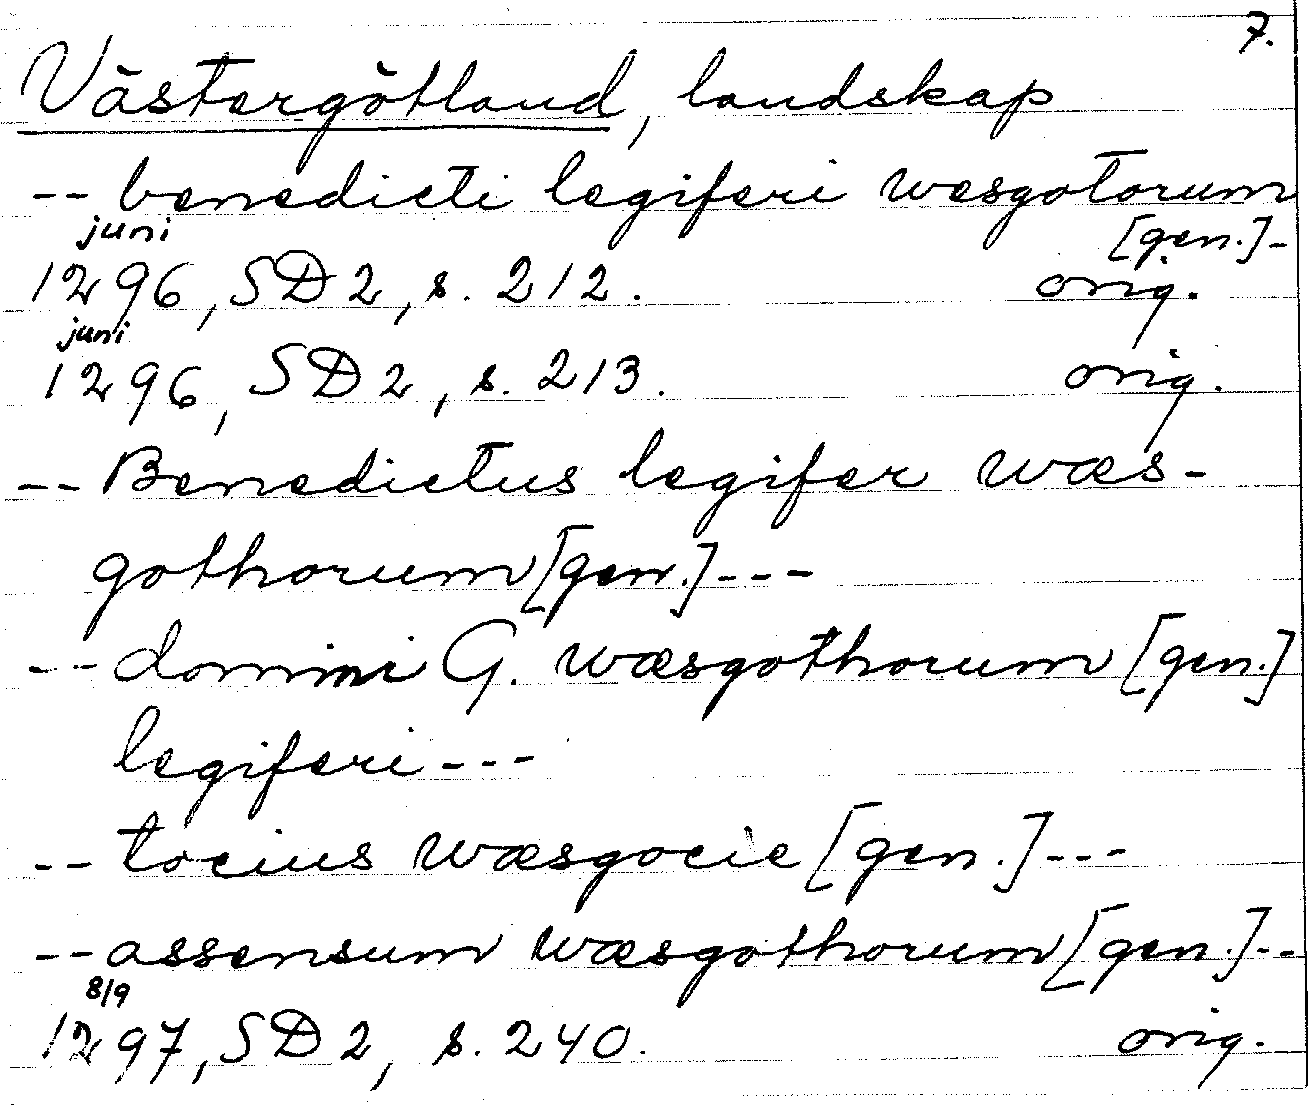 7.
Västergötland, landskap
-- benedicti legiferi wesgotorum
[gen.]-
juni
1296, SD 2, s. 212. orig.
juni
1296, SD 2, s. 213. orig.
-- Benedictus legifer wæs-
gothorum [gen.]---
--domini G. wæsgothorum [gen.]
legiferi---
-- tocius wæsgocie [gen.]---
--assensum wæsgothorum [gen.]--
8/9
1297, SD 2, s. 240. orig.